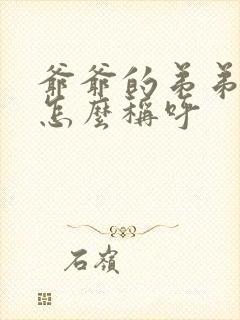 爺爺的弟弟
怎麼稱呼
石嶺